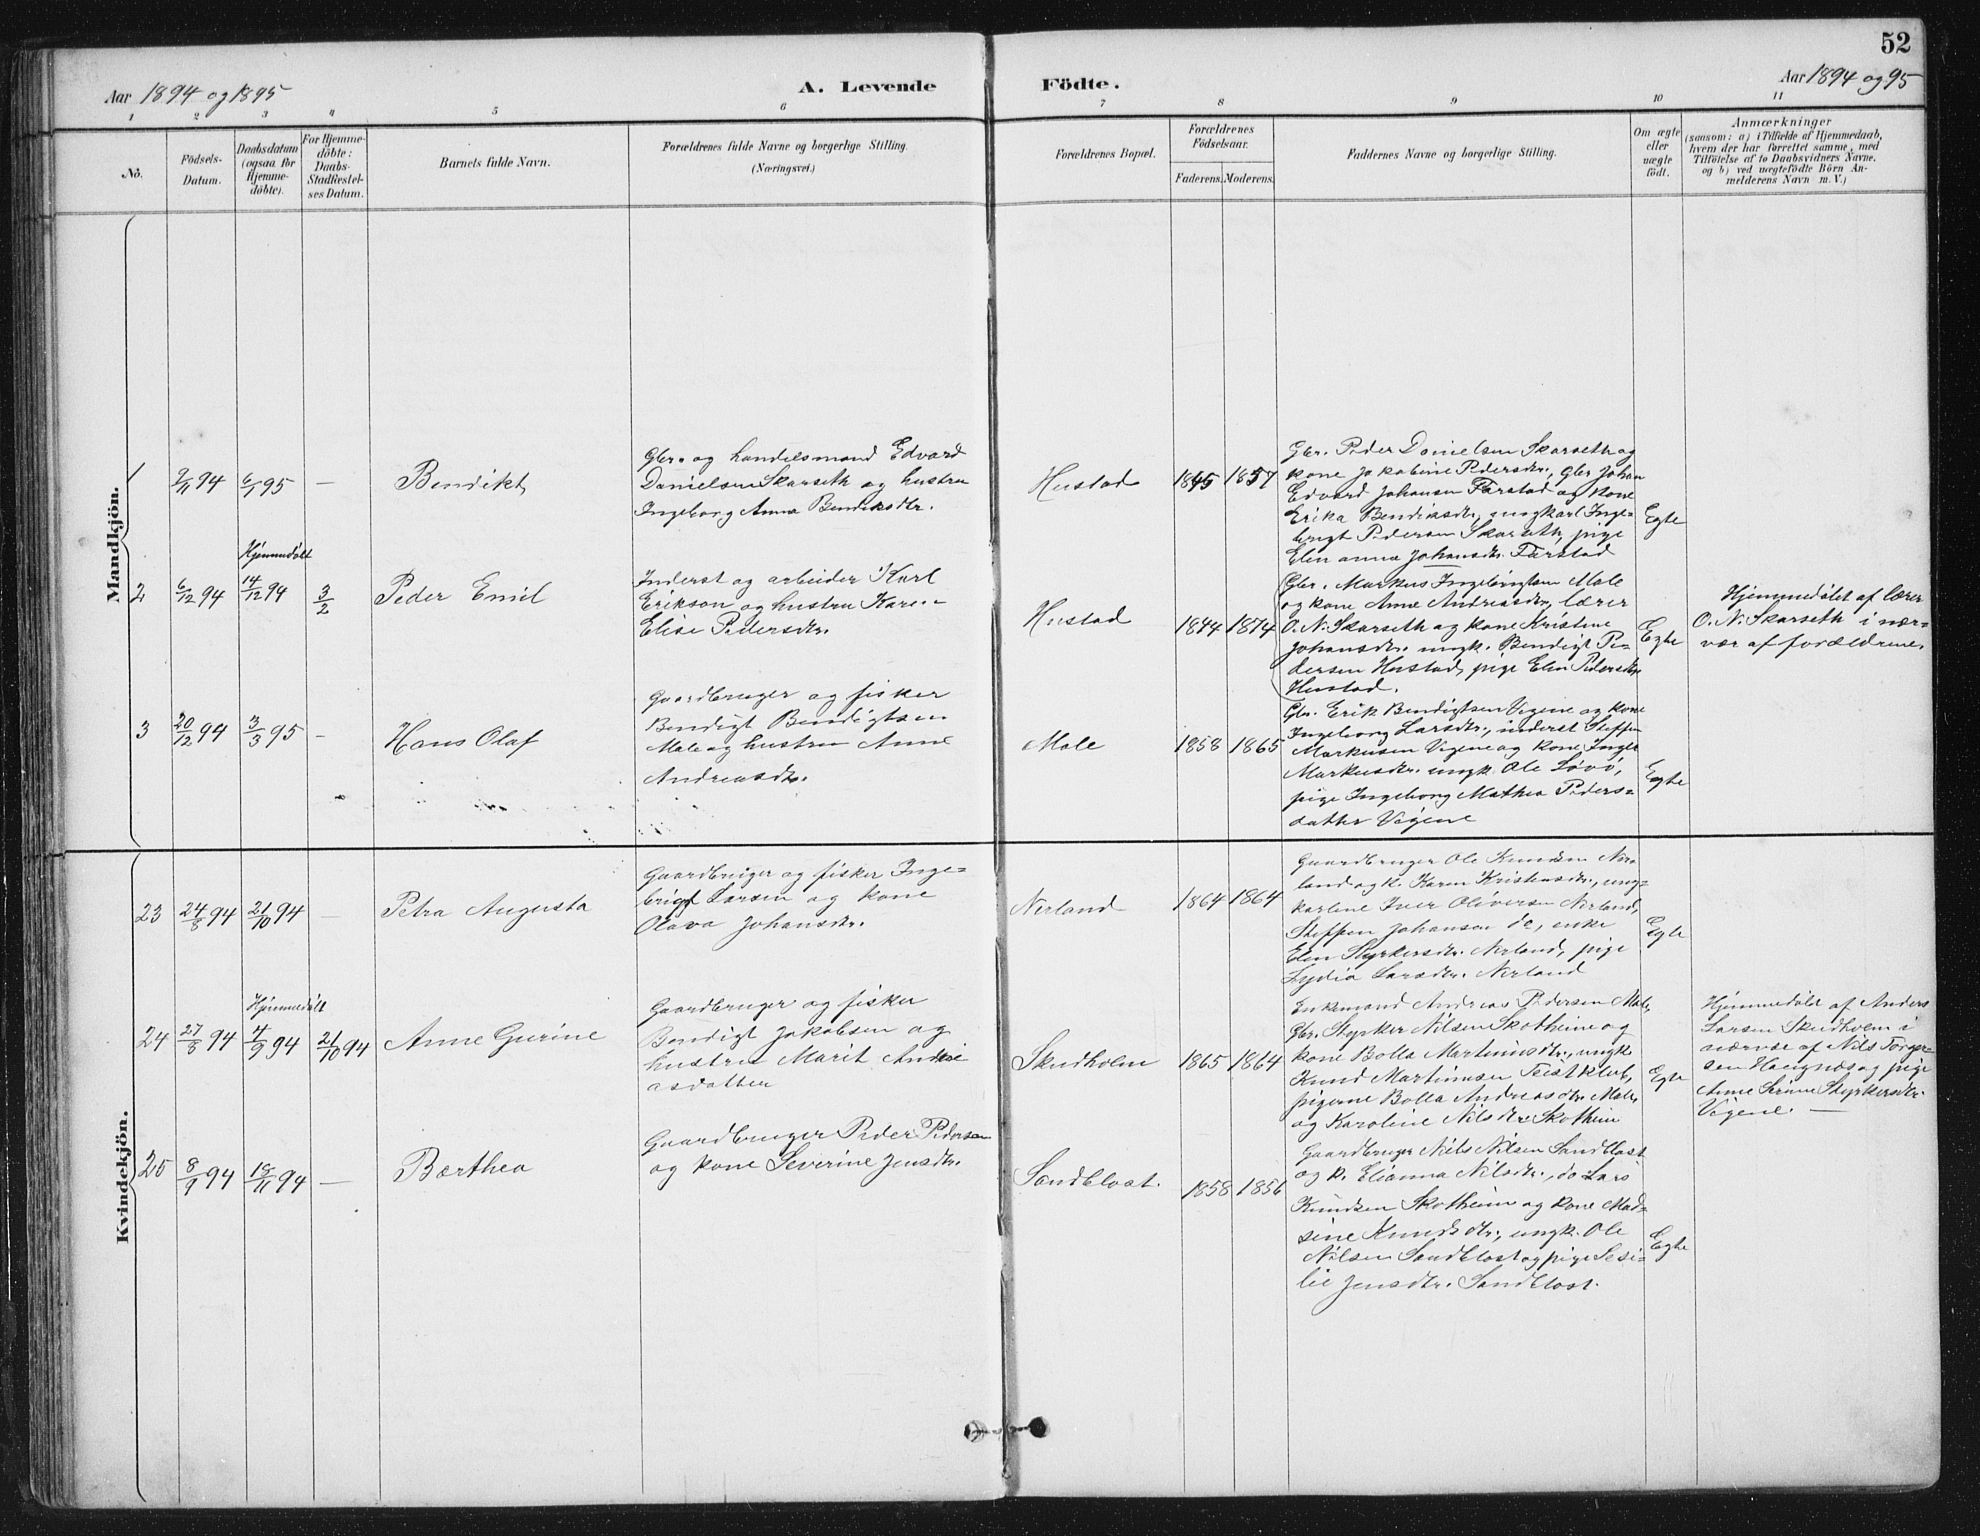 52
Aar 1894 og 1895
A. Levende
Födte.
Aar 1894 og 95
1 2 3 4 5 6 7 8 9 10 11
No.
Födsels-
Datum.
Daabsdatum
(ogsaa for
Hjemme-
döbte).
For Hjemme-
döbte:
Daabs-
Stadfestel-
ses Datum.
Barnets fulde Navn.
Forældrenes fulde Navne og borgerlige Stilling.
(Næringsvei.)
Forældrenes Bopæl.
Forældrenes
Födselsaar.
Faderens.
Moderens.
Faddernes Navne og borgerlige Stilling.
Om ægte
eller
uægte
födt.
Anmærkninger
(saasom: a) i Tilfælde af Hjemmedaab,
hvem der har forrettet samme, med
Tilföielse af to Daabsvidners Navne.
og b) ved uægtefödte Börn An-
melderens Navn m. V.)
Mandkjön.
1
2/11 94
6/1 95
—
Bendikt
Gbr. og handelsmand Edvard
Danielsen Skarseth og hustru
Ingeborg Anna Bendiksdtr.
Hustad
1845
1857
Gbr. Peder Danielsen Skarseth og
kone Jakobine Pedersdtr., Gbr Johan
Edvard Johansen Farstad og kone
Erika Bendiksdtr, ungkarl Inge-
brigt Pedersen Skarseth, pige
Elen anna Johansdtr. Farstad
Egte
2
6/12 94
Hjemmedöbt
14/12 94
3/2
Peder Emil
Inderst og arbeider Karl
Erikson og hustru Karen
Elise Pedersdtr.
Hustad
1844
1874
Gbr. Markus Ingebrigtsen Male
og kone Anne Andreasdtr, lærer
O. N. Skarseth og kone Kristine
Johansdtr. ungk. Bendigt Pe-
dersen Hustad, pige Elen Pedersdtr
Hustad.
Egte
Hjemmedöbt af lærer
O. N. Skarseth i nær-
vær af forældrene.
3
20/12 94
3/3 95
—
Hans Olaf
Gaardbruger og fisker
Bendigt Bendigtsen
Male og hustru Anne
Andreasdtr.
Male
1858
1865
Gbr. Erik Bendigtsen Vigene og kone
Ingeborg Larsdtr., inderst Steffen
Markusen Vigene og kone Inger
Markusdtr. ungk. Ole Lövö,
pige Ingeborg Mathea Peders-
datter Vigene
Egte
Kvindekjön.
23
24/8 94
21/10 94
—
Petra Augusta
Gaardbruger og fisker Inge-
brigt Larsen og kone
Olava Johansdtr.
Nerland
1864
1864
Gaardbruger Ole Knudsen Ner-
land og k. Karen Kristensdtr., ung-
karlene Iver Oliversen Nerland,
Steffen Johansen do, enke
Elen Styrkersdtr. Nerland, pige
Lydia Larsdtr. Nerland
Egte
24
27/8 94
Hjemmedöbt
4/9 94
21/10 94
Anne Gurine
Gaardbruger og fisker
Bendigt Jakobsen og
hustru Marit Andre
asdatter
Skudholm
1865
1864
Enkemand Andreas Pedersen Male,
Gbr. Styrker Nilsen Skotheim og
kone Bolla Martinusdtr., ungk.
Knud Martinusen Tviskleb,
pigerne Bolla Andreasdtr. Male,
og Karoline Nilsdtr Skotheim
Egte
Hjemmedöbt af Anders
Larsen Skudholm i
nærvær af Nils Torger-
sen Haugnæs og pige
Anne Serine Styrkersdtr.
Vigene. —
25
8/9 94
18/11 94
—
Bærthea
Gaardbruger Peder Pedersen
og kone Severine Jensdtr.
Sandblaat.
1858
1856
Gaardbruger Niels Nilsen Sandblaat
og k. Elianna Nilsdtr., do Lars
Knudsen Skotheim og kone Mad-
sine Knudsdtr., ungk. Ole
Nilsen Sandblaat og pige Sesi-
lie Jensdtr. Sandblaat.
Egte